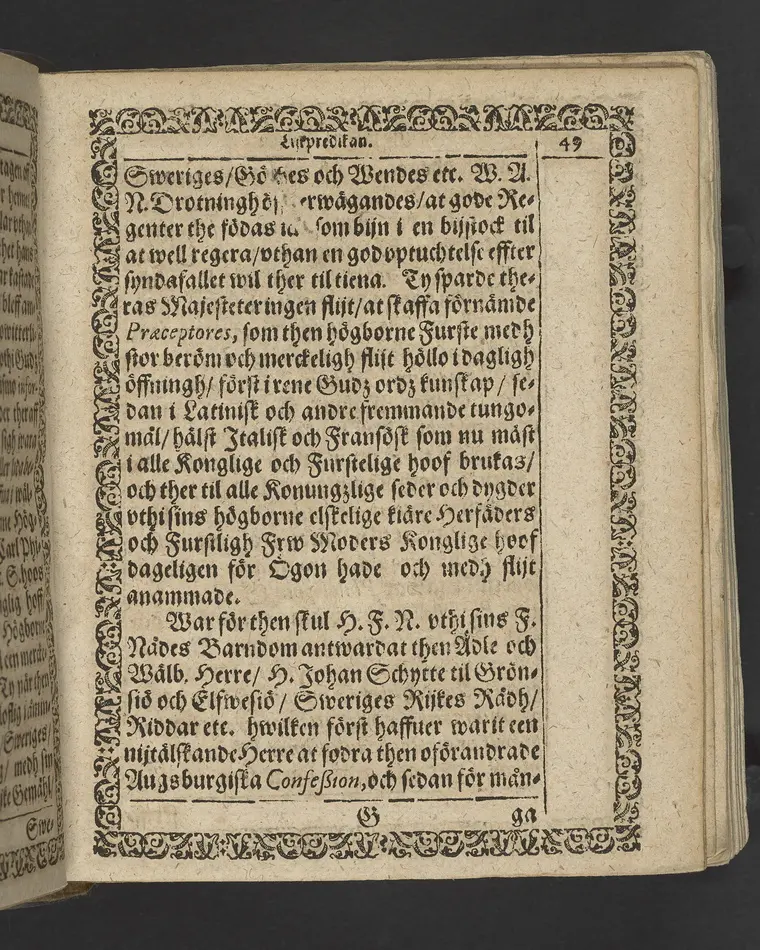 Lijkpredikan. 49
Sweriges/Gö es och Wendes etc. W. A.
N. Drotningh rwägandes/at gode Re-
genter the födas som bijn i en bijstock til
at well regera/vthan en god vptuchtelse effter
syndafallet wil ther til tiena. Ty sparde the-
ras Majesteter ingen flijt/at skaffa förnämde
Præceptores, som then högborne Furste medh
stor beröm och merckeligh flijt höllo i dagligh
öffningh/ först i rene Gudz ordz kunskap/ se-
dan i Latinisk och andre fremmande tungo-
mål/hälst Italisk och Fransösk som nu mäst
i alle Konglige och Furstelige hoof brukas/
och ther til alle Konungzlige seder och dygder
vthi sins högborne elskelige kiäre Herfäders
och Furstligh Frw Moders Konglige hoof
dageligen för Ögon hade och medh flijt
anammade.
War för then skul H. F. N. vthi sins F.
Nådes Barndom antwardat then Ädle och
Wälb. Herre/ H. Johan Schytte til Grön-
siö och Elfwesiö/ Sweriges Rijkes Rådh/
Riddar etc. hwilken först haffuer warit een
nijtälskande Herre at fodra then oförandrade
Augsburgiska Confeßion, och sedan för mån-
G ga